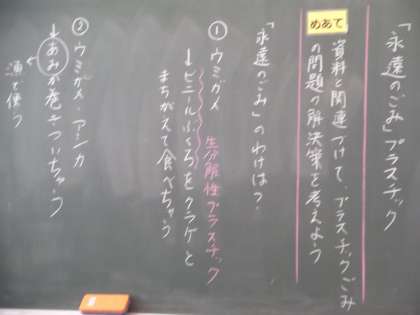 「永遠のごみ」プラスチック
めあて
資料と関連づけて、プラスチックごみ
の問題の解決策を考えよう
「永遠のごみ」のわけは？
① ウミガメ 生分解性プラスチック
→ビニールぶくろをクラゲと
まちがえて食べちゃう
② ウミガメ・アシカ
→あみが巻きついちゃう
漁で使う